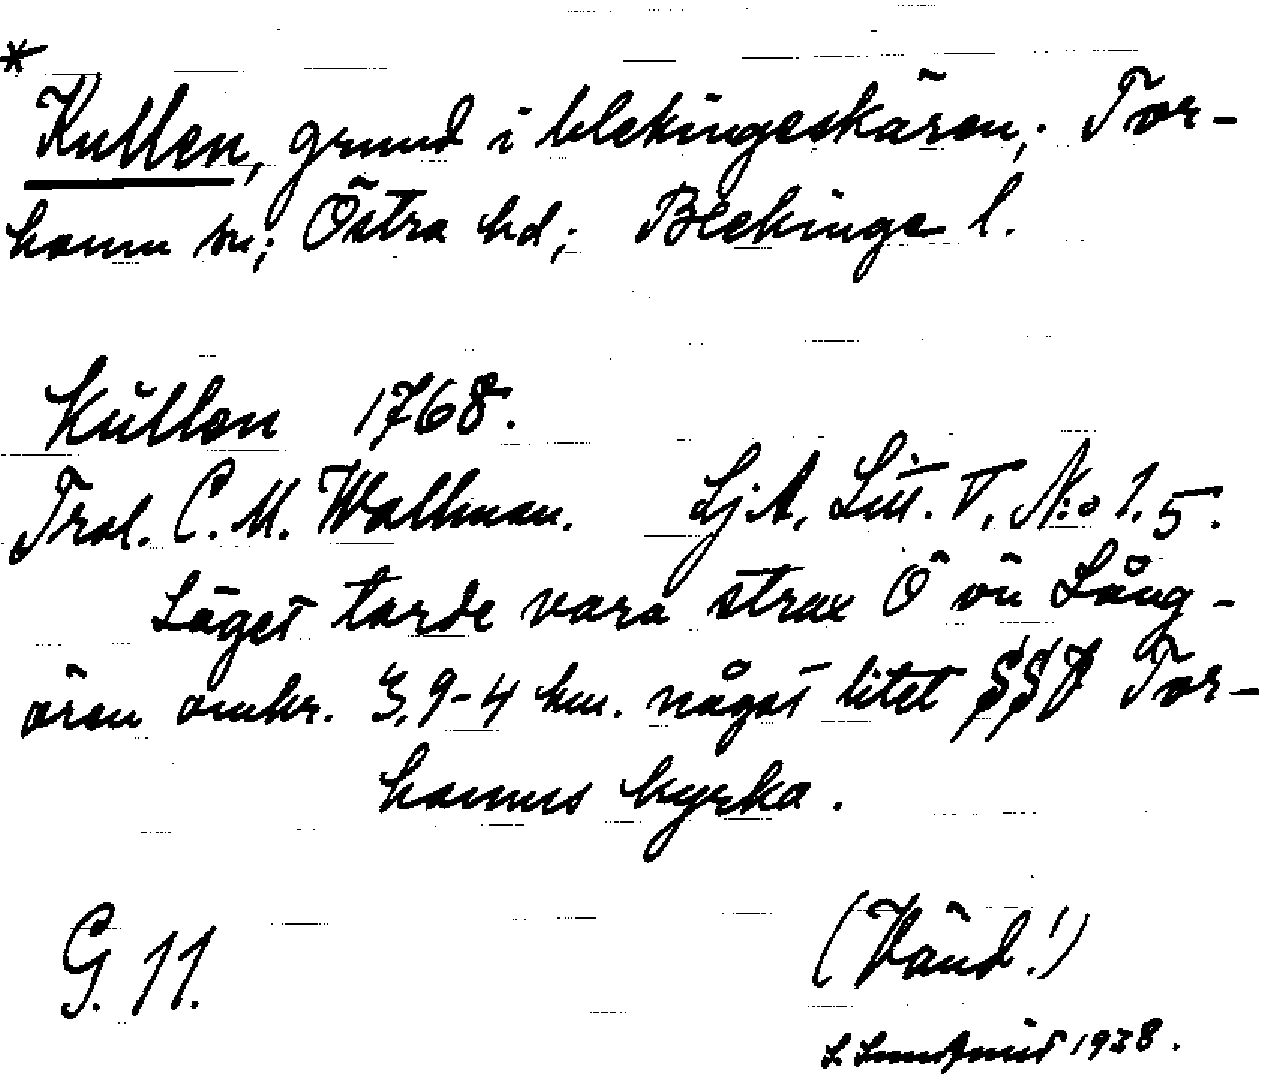 *
Kullen, grund i blekingeskären; Tor-
hamn sn; Östra hd; Blekinge l.
Kullen 1768.
Trol. C. M. Wallman. Lj.A. Litt. V. N:o 1.5.
Läget torde vara strax Ö om Lång-
ören omkr. 3,9-4 km. något litet SSO Tor-
hamns kyrka.
G. 11. (Vänd!)
1938.